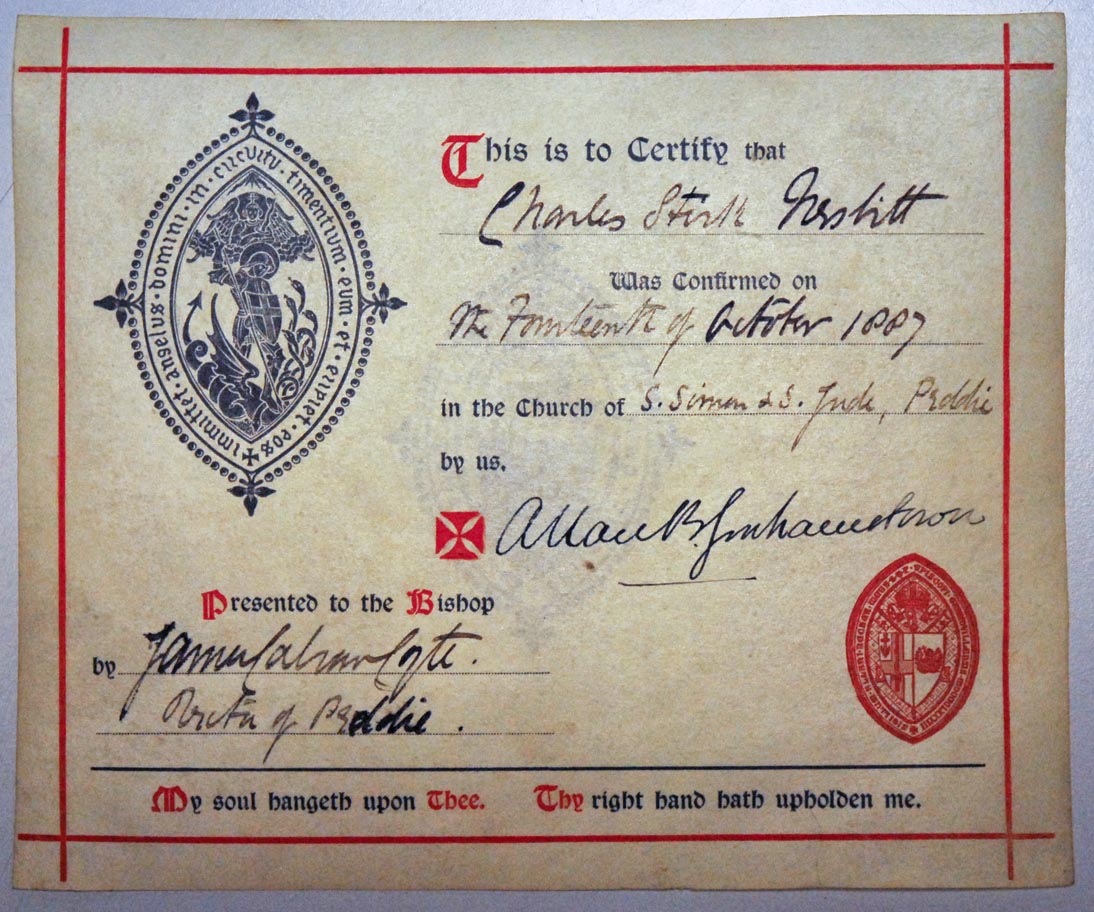 ✠ immittet · angelus · domini · in · circuitu · timentium · eum · et · eripiet · eos
This is to Certify that
Charles Stirk Nesbitt
Was Confirmed on
the Fourteenth of October 1887
in the Church of S. Simon & S. Jude, Peddie
by us.
Allan B. Grahamstown
Presented to the Bishop
by James Cole.
Rector of Peddie.
My soul hangeth upon Thee. Thy right hand hath upholden me.